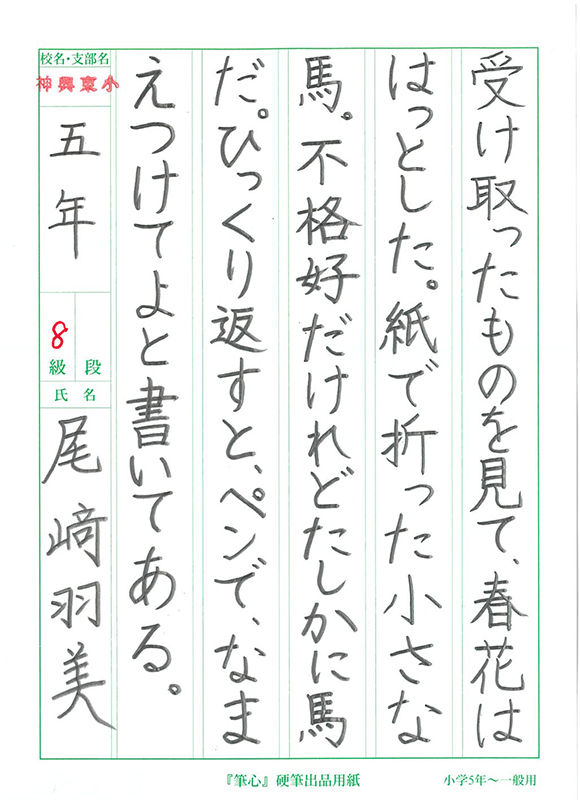 受け取ったものを見て、春花は
はっとした。紙で折った小さな
馬。不格好だけれどたしかに馬
だ。ひっくり返すと、ペンで、なま
えつけてよと書いてある。
校名・支部名
神興東小
五年
8
段
級
氏名
尾﨑羽美
『筆心』硬筆出品用紙
小学5年〜一般用